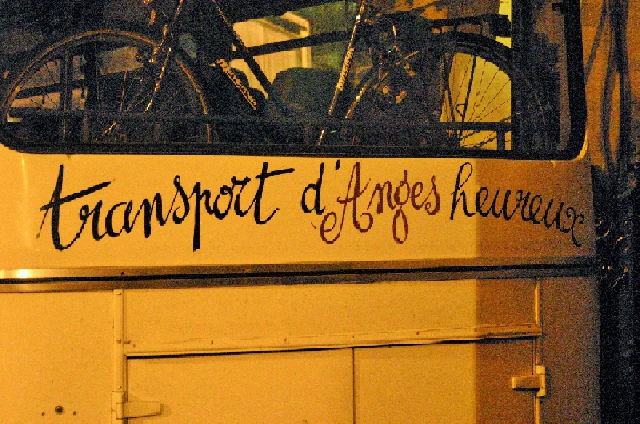 transport d'Anges heureux